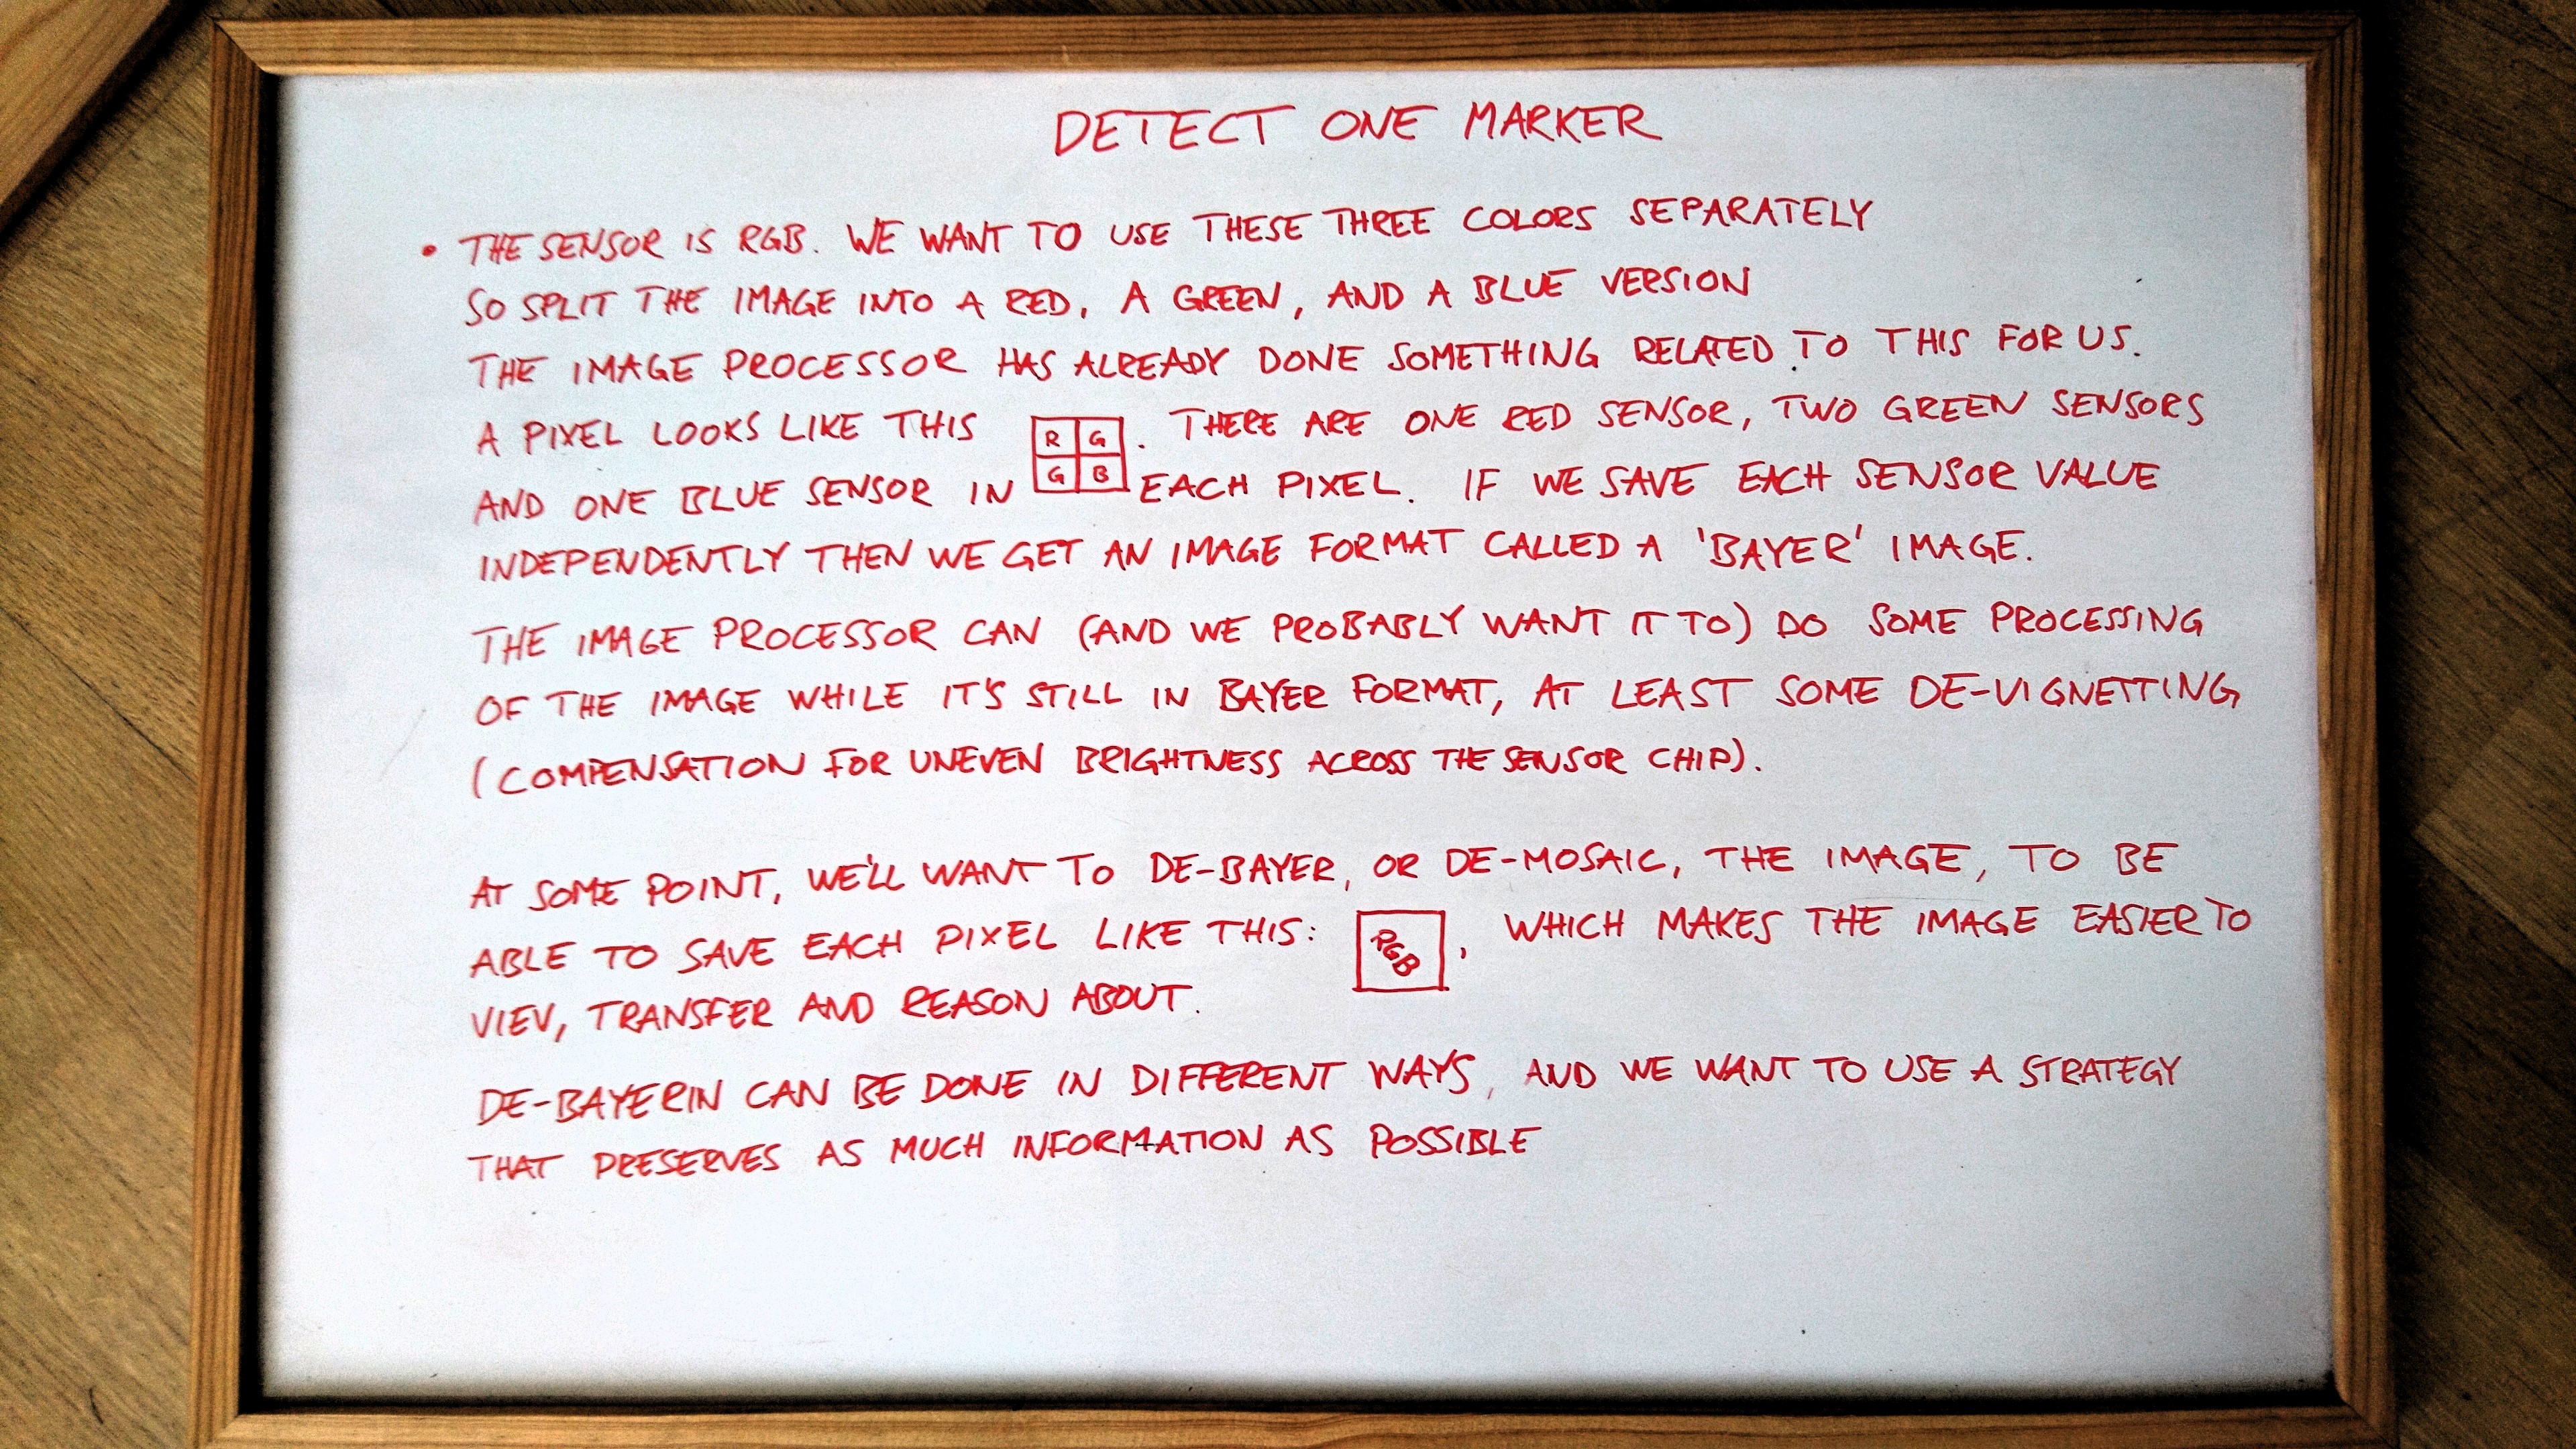 DETECT ONE MARKER
• THE SENSOR IS RGB. WE WANT TO USE THESE THREE COLORS SEPARATELY
SO SPLIT THE IMAGE INTO A RED, A GREEN, AND A BLUE VERSION
THE IMAGE PROCESSOR HAS ALREADY DONE SOMETHING RELATED TO THIS FOR US.
A PIXEL LOOKS LIKE THIS R G . THERE ARE ONE RED SENSOR, TWO GREEN SENSORS
AND ONE BLUE SENSOR IN G B EACH PIXEL. IF WE SAVE EACH SENSOR VALUE
INDEPENDENTLY THEN WE GET AN IMAGE FORMAT CALLED A 'BAYER' IMAGE.
THE IMAGE PROCESSOR CAN (AND WE PROBABLY WANT IT TO) DO SOME PROCESSING
OF THE IMAGE WHILE IT'S STILL IN BAYER FORMAT, AT LEAST SOME DE-VIGNETTING
(COMPENSATION FOR UNEVEN BRIGHTNESS ACROSS THE SENSOR CHIP).
AT SOME POINT, WE'LL WANT TO DE-BAYER, OR DE-MOSAIC, THE IMAGE, TO BE
ABLE TO SAVE EACH PIXEL LIKE THIS: RGB , WHICH MAKES THE IMAGE EASIER TO
VIEV, TRANSFER AND REASON ABOUT.
DE-BAYERIN CAN BE DONE IN DIFFERENT WAYS, AND WE WANT TO USE A STRATEGY
THAT PRESERVES AS MUCH INFORMATION AS POSSIBLE